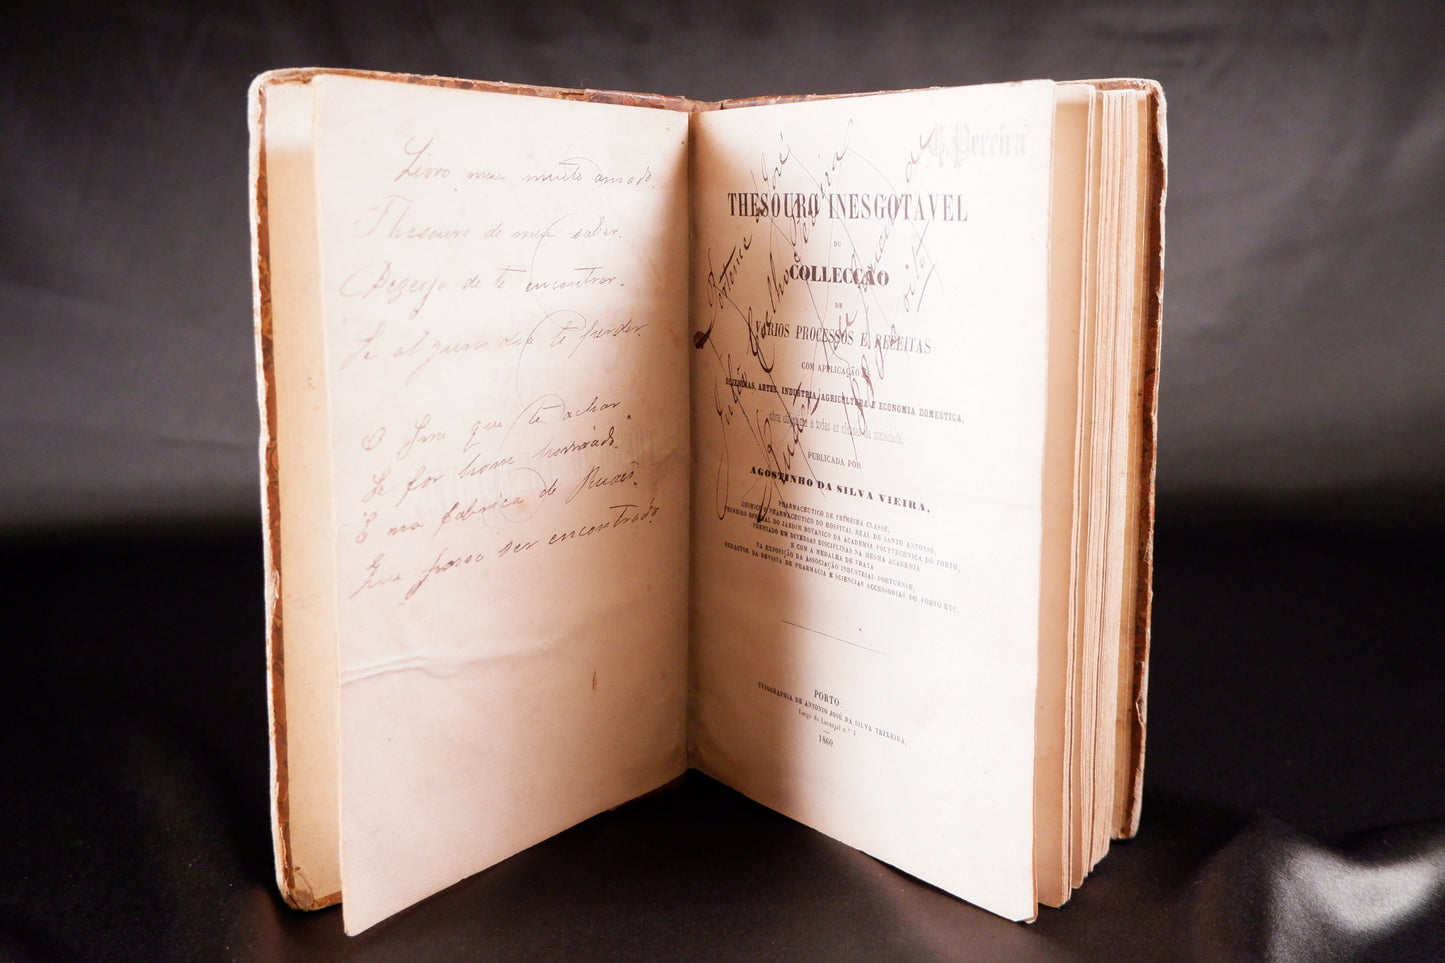 Livro meu muito amado.
Thesouro de meu saber.
Dezejo de te encontrar.
Se al gum dia te perder.
O Snr que te achar.
Se for bom honrado.
É na fabrica de Ruaes.
Que posso ser encontrado.
Pereira
THESOURO INESGOTAVEL
OU
COLLECÇÃO
DE
VARIOS PROCESSOS E RECEITAS
COM APPLICAÇÃO ÁS
SCIENCIAS, ARTES, INDUSTRIA, AGRICULTURA E ECONOMIA DOMESTICA,
obra a todas as classes da sociedade.
PUBLICADA POR
AGOSTINHO DA SILVA VIEIRA,
PHARMACEUTICO DE PRIMEIRA CLASSE,
CHIMICO E PHARMACEUTICO DO HOSPITAL REAL DE SANTO ANTONIO,
OFFICIAL DO JARDIM BOTANICO DA ACADEMIA POLYTECHNICA DO PORTO,
PREMIADO EM DIVERSAS DISCIPLINAS NA MESMA ACADEMIA
E COM A MEDALHA DE PRATA
NA EXPOSIÇÃO DA ASSOCIAÇÃO INDUSTRIAL PORTUENSE,
REDACTOR DA REVISTA DE PHARMACIA E SCIENCIAS ACCESSORIAS DO PORTO ETC.
PORTO:
TYPOGRAPHIA DE ANTONIO JOSÉ DA SILVA TEIXEIRA,
Largo do Laranjal n.º 4
1860
Pertence a José
Coelho